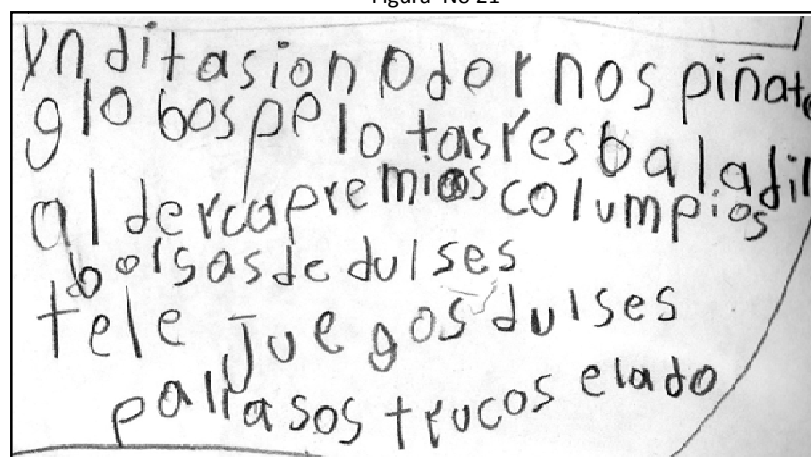 Figura No 21
yn ditasion odornos piñata
globos pelotas resbaladil
al dercapremios columpios
bolsas de dulses
tele juegos dulses
palrasos trucos elado